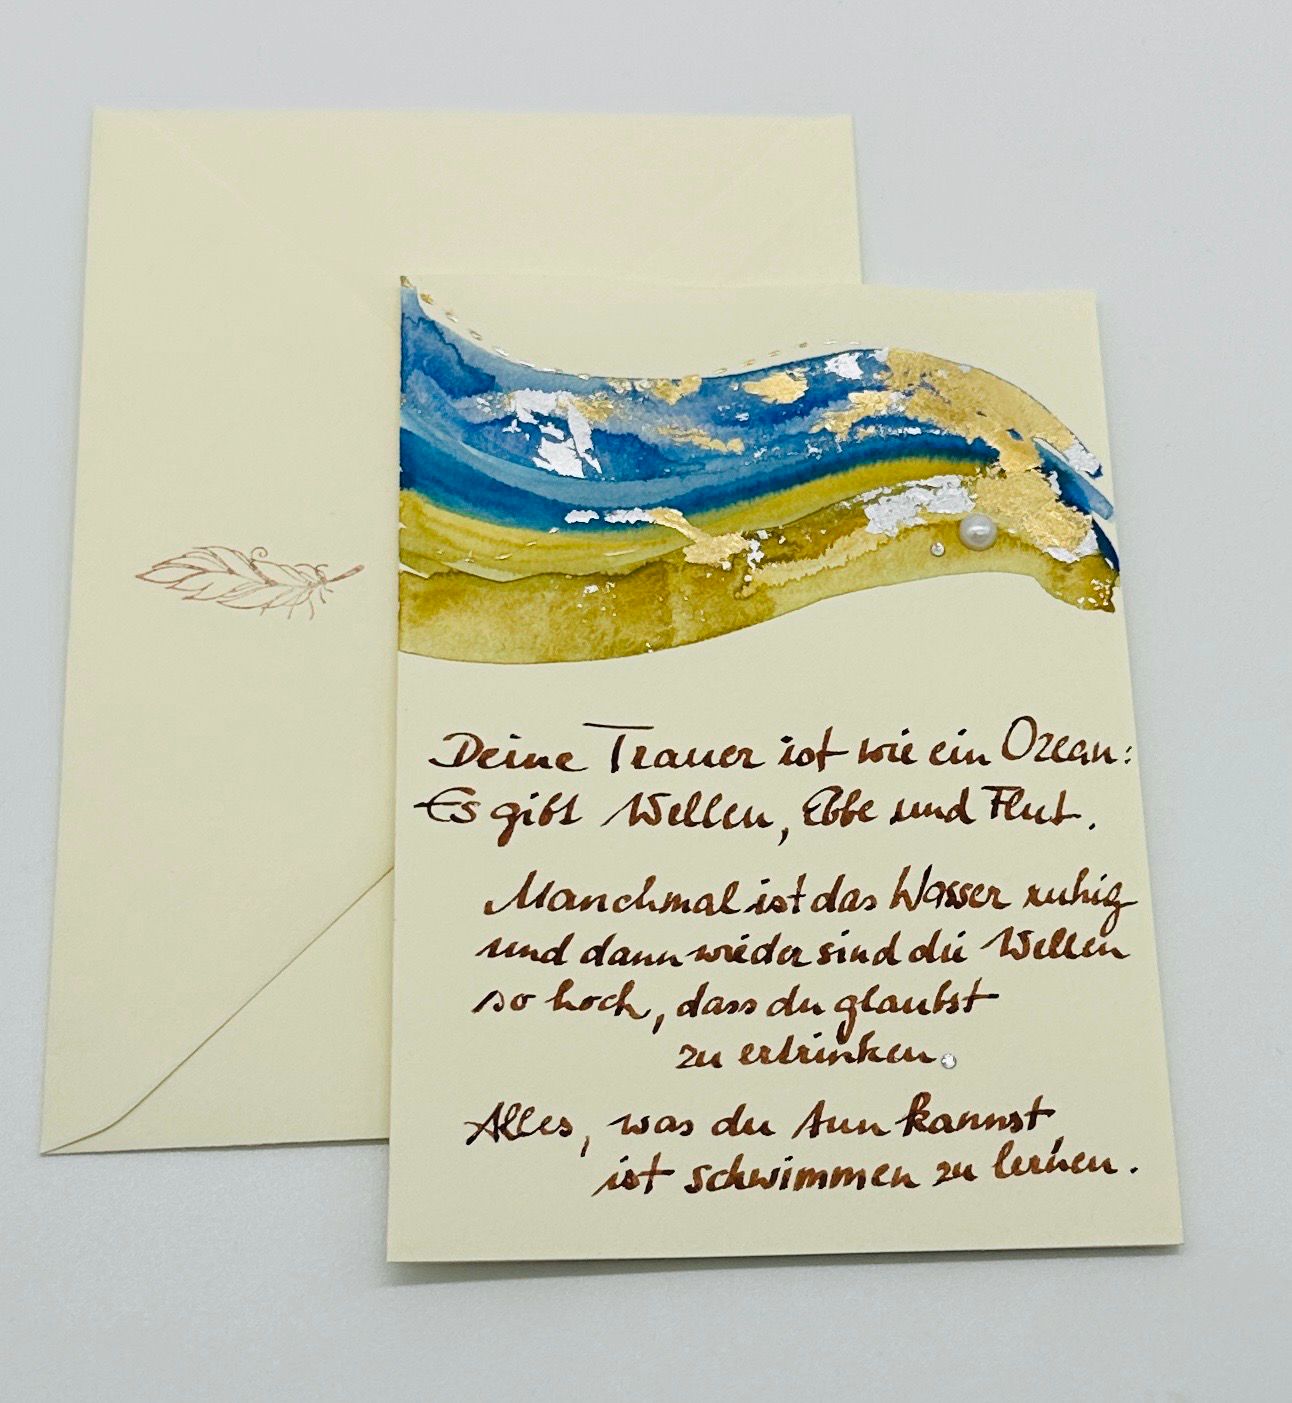 Deine Trauer ist wie ein Ozean:
Es gibt Wellen, Ebbe und Flut.
Manchmal ist das Wasser ruhig
und dann wieder sind die Wellen
so hoch, dass du glaubst
zu ertrinken.
Alles, was du tun kannst
ist schwimmen zu lernen.